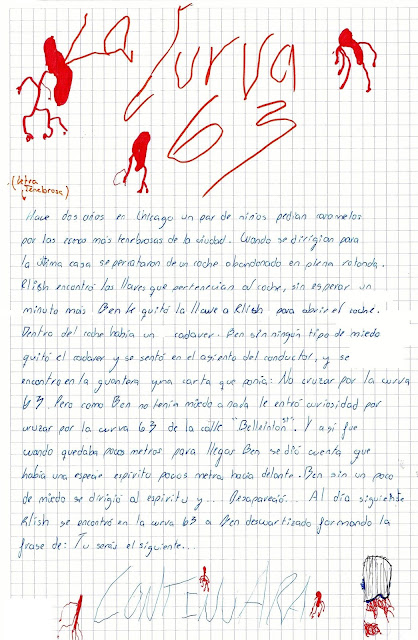 La Curva
63
(Letra
Tenebrosa)
Hace dos años en Chicago un par de niños pedian caramelos
por las casas más tenebrosas de la ciudad. Cuando se dirigian para
la última casa se percataron de un coche abandonado en plena rotonda.
Klish encontró las llaves que pertenecian al coche, sin esperar un
minuto más Ben le quitó la llave a Klish para abrir el coche.
Dentro del coche había un cadaver. Ben sin ningún tipo de miedo
quitó el cadaver y se sentó en el asiento del conductor, y se
encontro en la guantera una carta que ponia: No cruzar por la curva
63. Pero como Ben no tenía miedo a nada le entró curiosidad por
cruzar por la curva 63 de la calle "Belleinton st". Y asi fue
cuando quedaba pocos metros para llegar Ben se dió cuenta que
había una especie espiritu pocos metros hacia delante. Ben sin un poco
de miedo se dirigió al espiritu y... Desapareció... Al día siguiente
Klish se encontró en la curva 63 a Ben descuartizado formando la
frase de: Tu serás el siguiente...
CONTINUARA